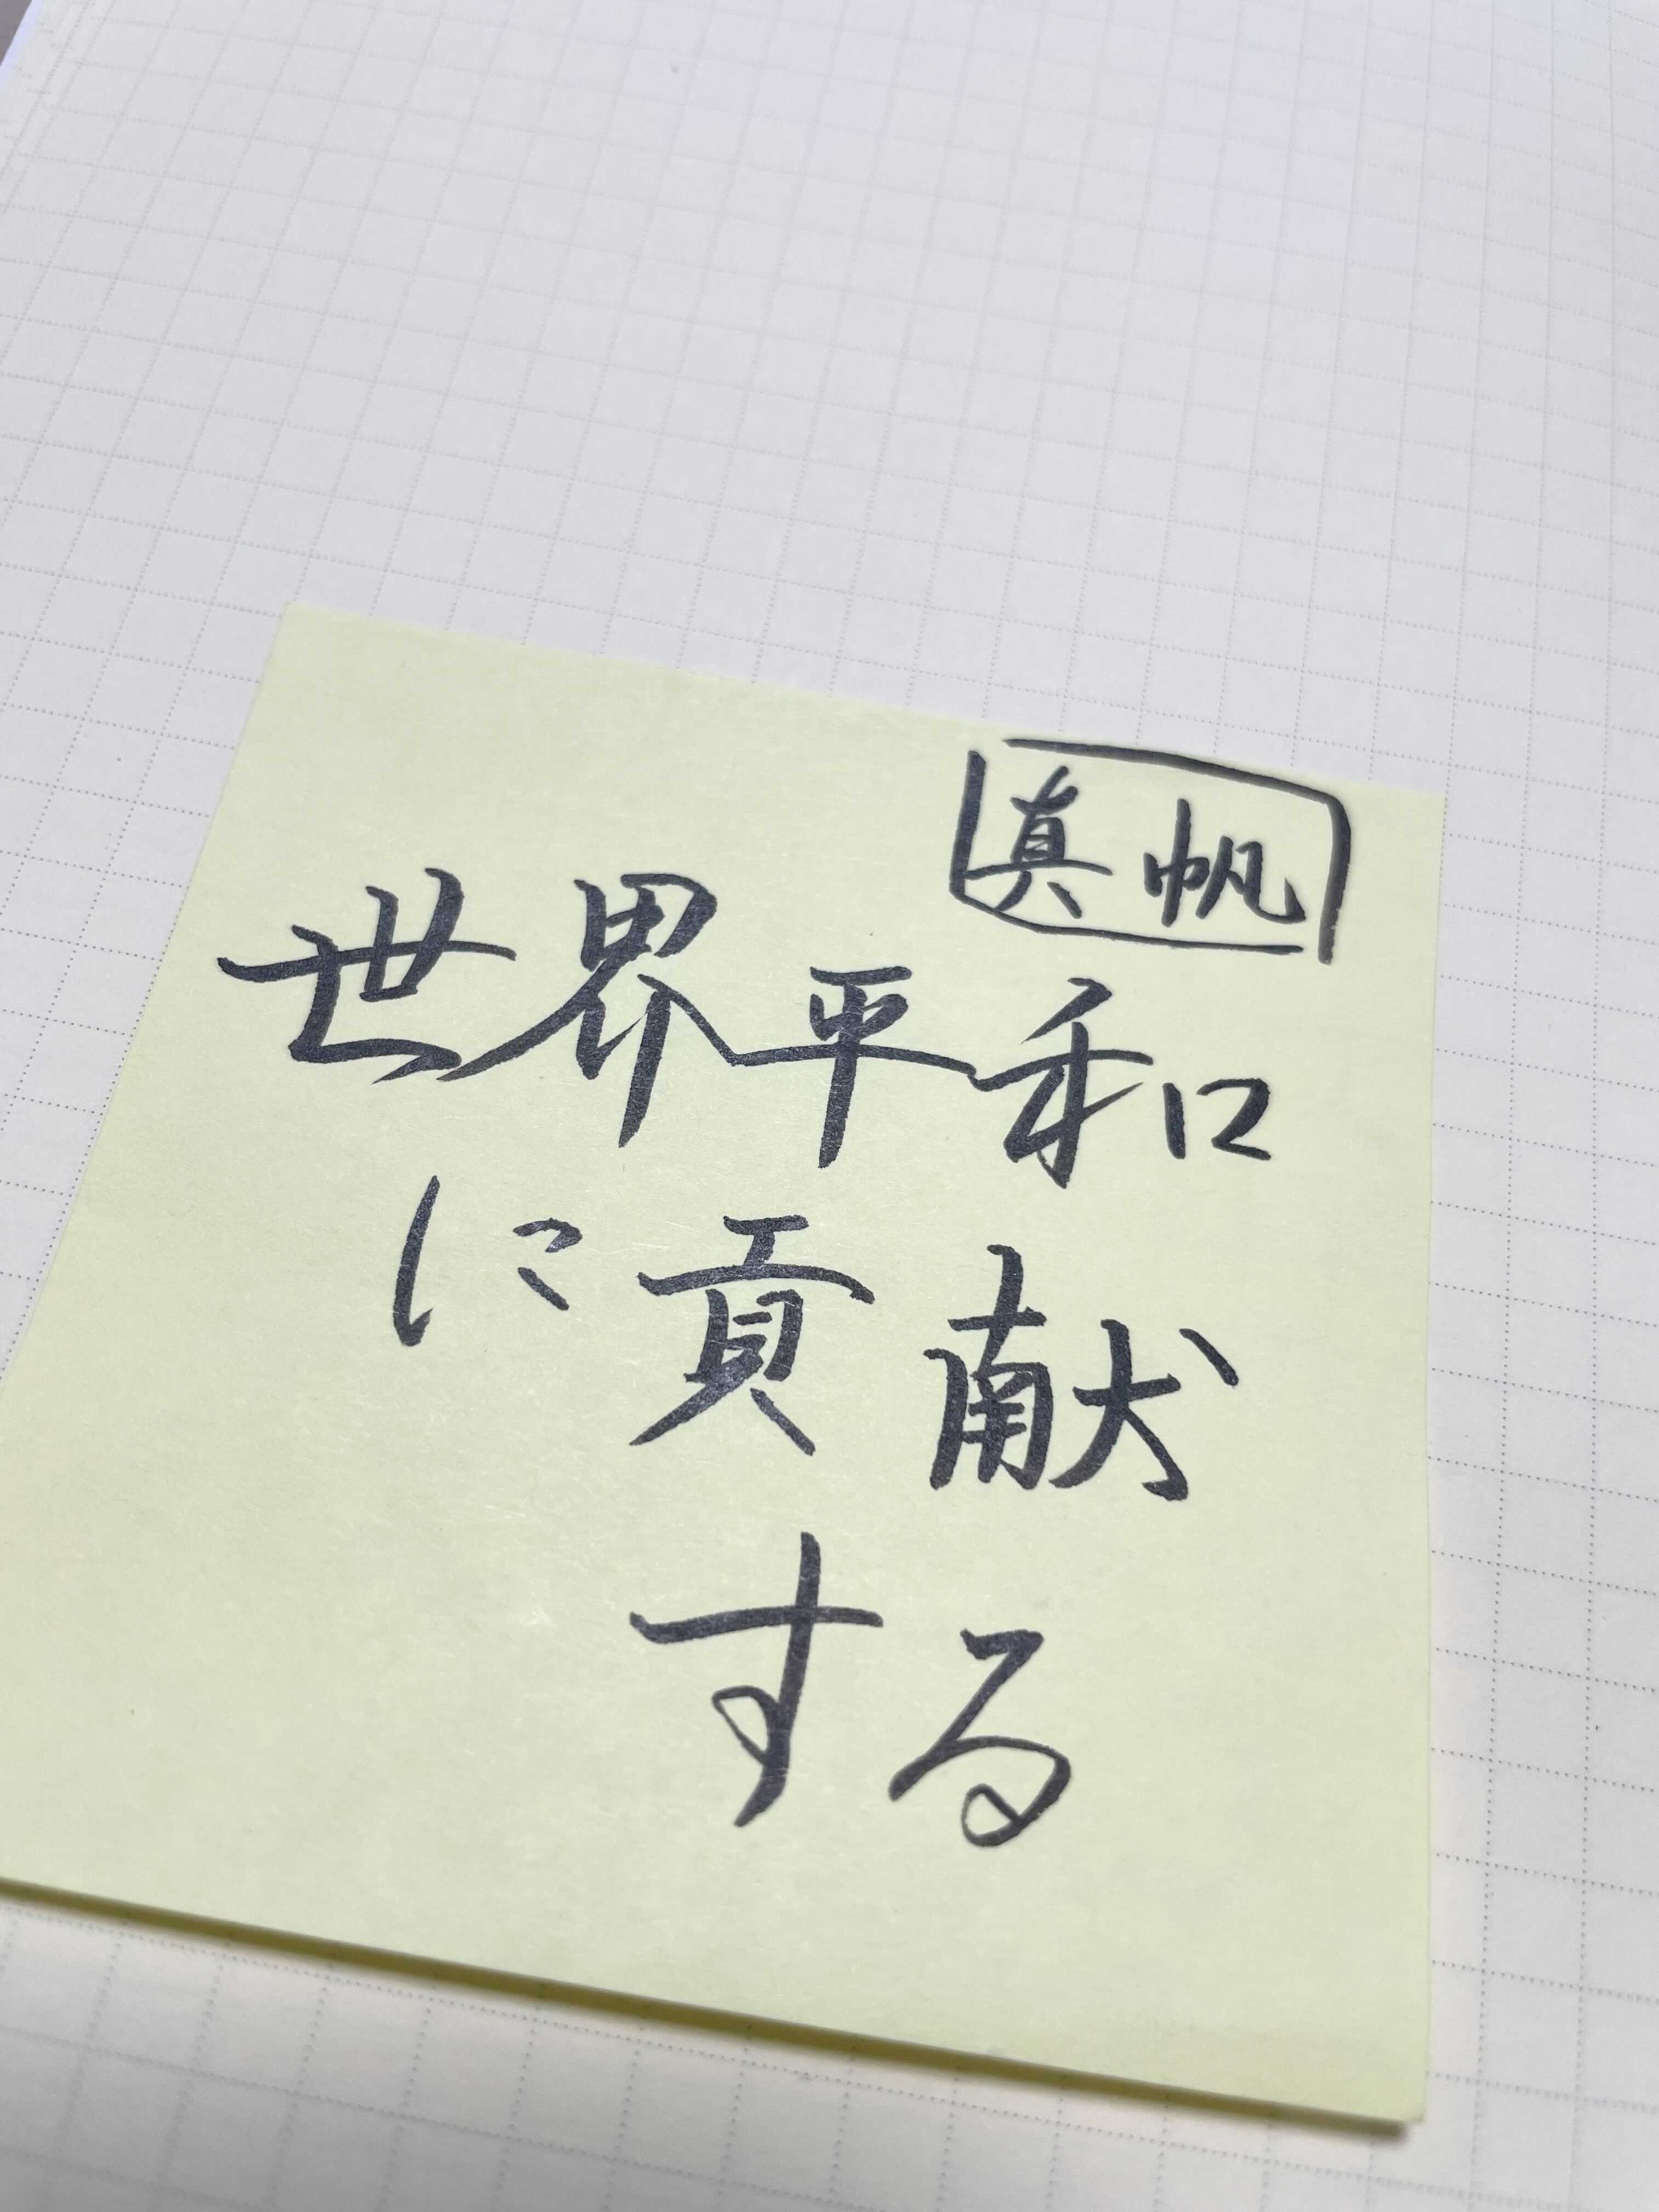 真帆
世界平和
に貢献
する